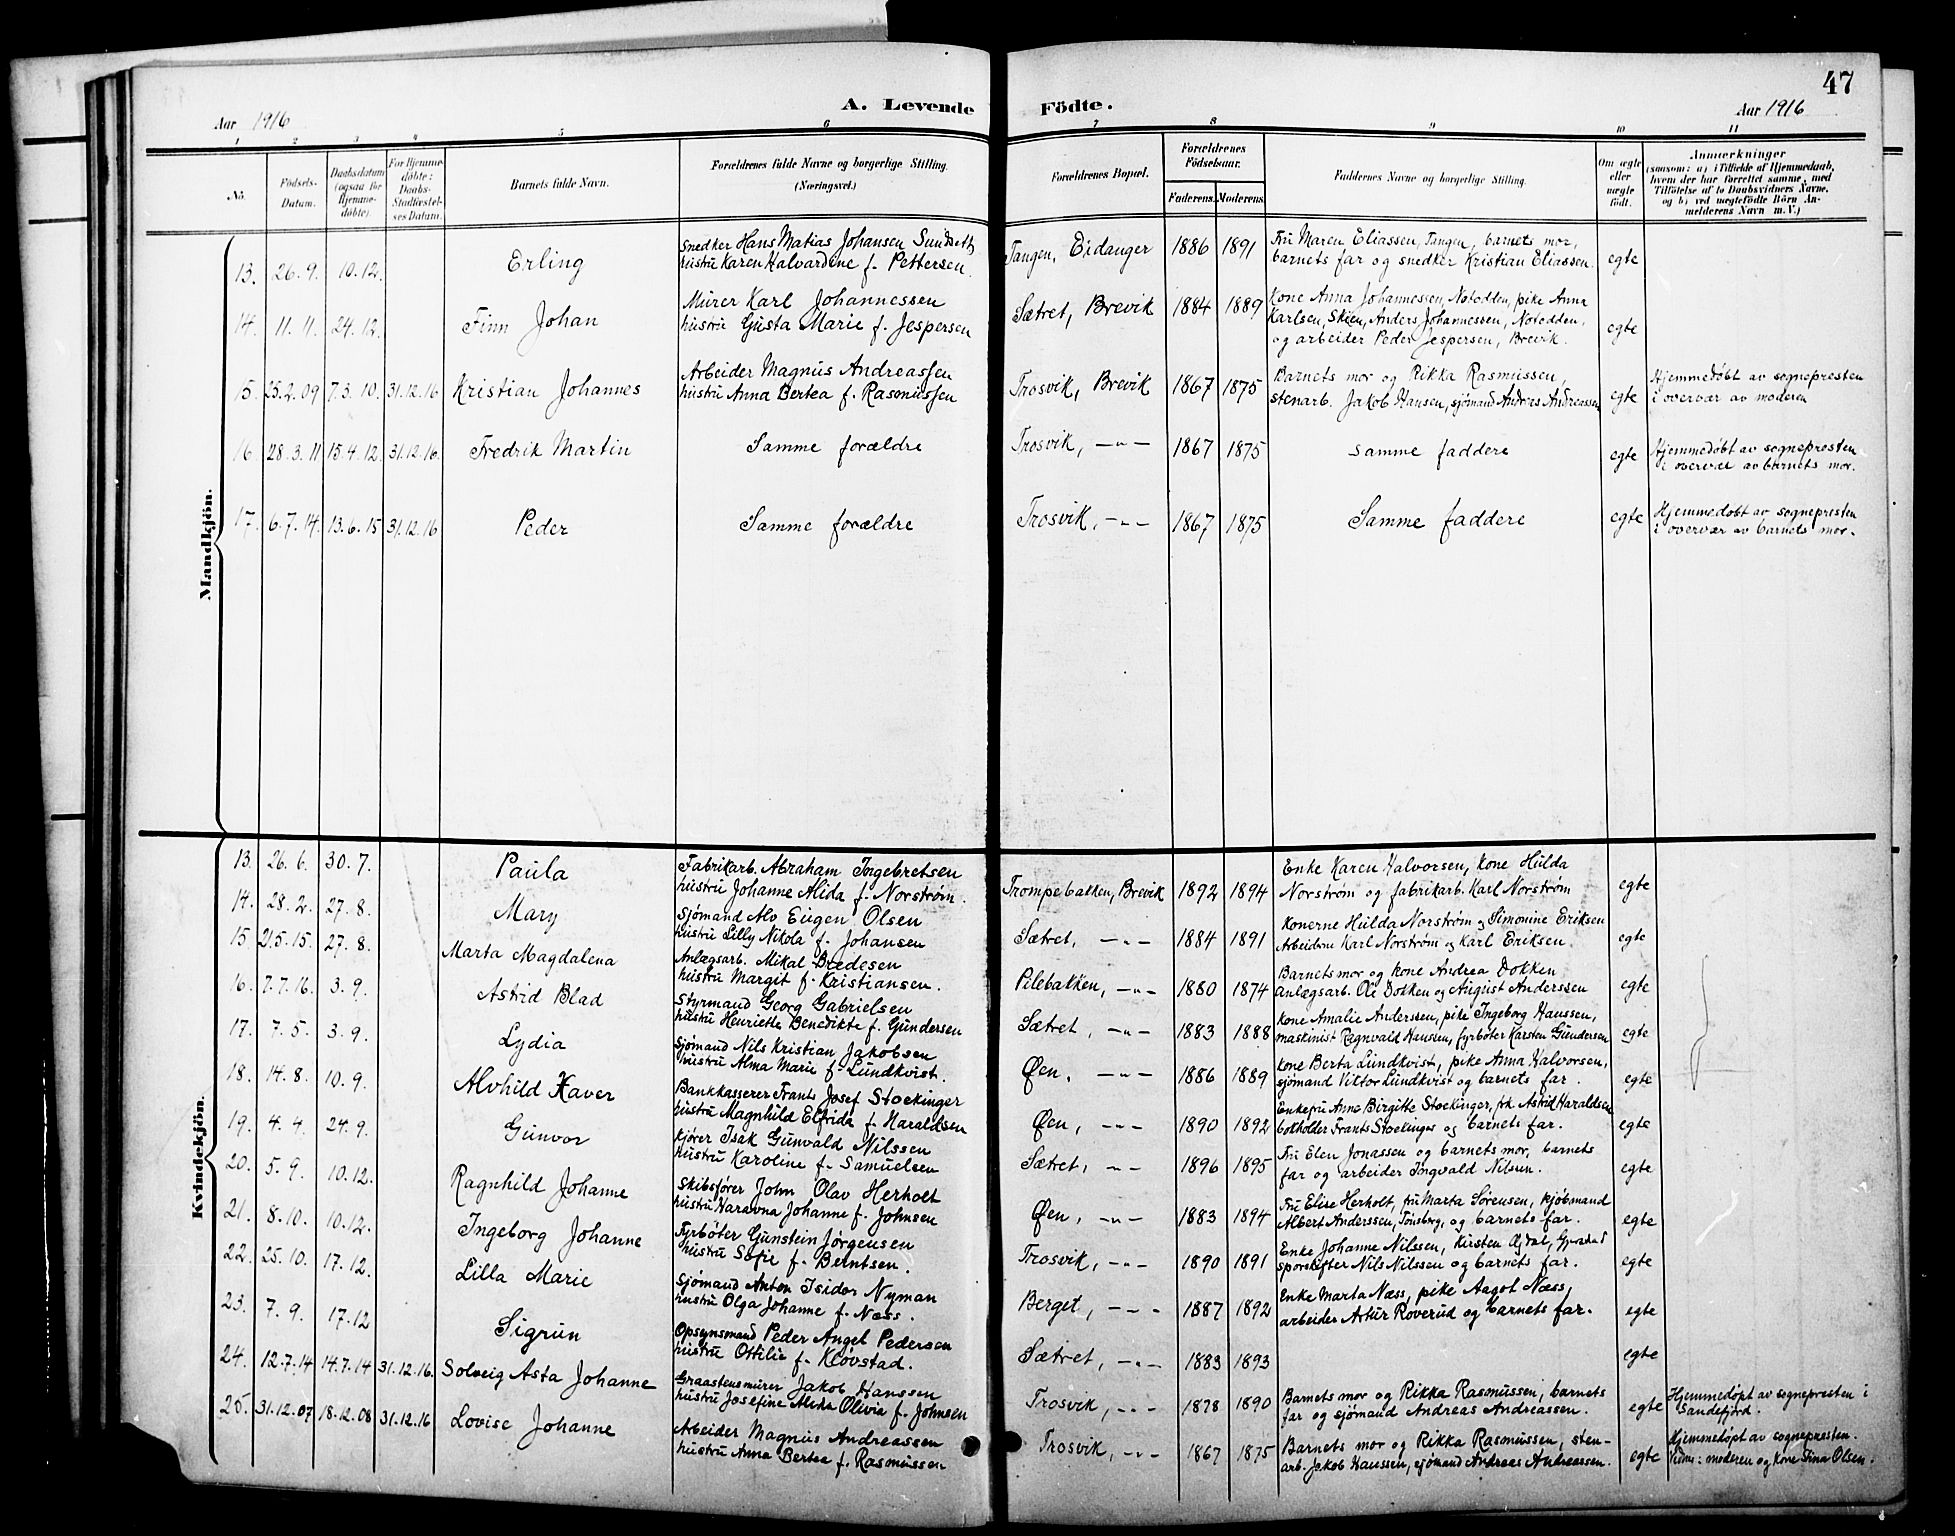 47
A. Levende Födte.
Aar 1916
Aar 1916
1 2 3 4 5 6 7 8 9 10 11
No.
Födsels-
Datum.
Daabsdatum
(ogsaa for
Hjemme-
döbte).
For Hjemme-
döbte:
Daabs-
Stadfæstel-
ses Datum.
Barnets fulde Navn.
Forældrenes fulde Navne og borgerlige Stilling.
(Næringsvei.)
Forældrenes Bopæl.
Forældrenes
Födselsaar.
Faderens. Moderens.
Faddernes Navne og borgerlige Stilling.
Om ægte
eller
uægte
födt.
Anmærkninger
(saasom: a) i Tilfælde af Hjemmedaab,
hvem der har forrettet samme, med
Tilföielse af to Daabsvidners Navne,
og b) ved uægtefödte Börn An-
melderens Navn m. V.)
Mandkjön.
13. 26.9. 10.12. Erling
Snedker Hans Matias Johansen Sundseth
hustru Karen Halvardine f. Pettersen.
Tangen, Eidanger 1886 1891
Fru Maren Eliassen, Tangen, barnets mor,
barnets far og snedker Kristian Eliassen. egte
14. 11.11. 24.12. Finn Johan
Murer Karl Johannessen
hustru Gusta Marie f. Jespersen
Sætret, Brevik 1884 1889
Kone Anna Johannessen, Notodden, pike Anna
Karlsen, Skien, Anders Johannessen, Notodden,
og arbeider Peder Jespersen, Brevik. egte
15. 25.2.09 7.3.10. 31.12.16 Kristian Johannes
Arbeider Magnus Andreassen
hustru Anna Bertea f. Rasmussen
Trosvik, Brevik 1867 1875
Barnets mor og Rikka Rasmussen,
stenarb. Jakob Hansen, sjömand Andreas Andreassen egte
Hjemmedøbt av sognepresten
i overvær av moderen
16. 28.3.11 15.4.12. 31.12.16. Fredrik Martin
Samme forældre
Trosvik, -"- 1867 1875
samme faddere egte
Hjemmedøbt av sognepresten
i overvær av barnets mor.
17. 6.7.14. 13.6.15 31.12.16 Peder
Samme forældre
Trosvik, -"- 1867 1875
Samme faddere egte
Hjemmedøbt av sognepresten
i overvær av barnets mor.
Kvindekjön.
13. 26.6. 30.7. Paula
Fabrikarb. Abraham Ingebretsen
hustru Johanne Alida f. Norstrøm.
Trompebakken, Brevik 1892 1894
Enke Karen Halvorsen, kone Hulda
Norstrøm og fabrikarb. Karl Norstrøm egte
14. 28.2. 27.8. Mary
Sjömand Alv Eugen Olsen
hustru Lilly Nikola f. Johansen
Sætret, -"- 1884 1891
Konerne Hulda Norstrøm og Simonine Eriksen
Arbeiderne Karl Norstrøm og Karl Eriksen. egte
15. 21.5.15. 27.8. Marta Magdalena
Anlægsarb. Mikal Bredesen
hustru Margit f. Kristiansen.
Pilebakken, -"- 1880 1874
Barnets mor og kone Andrea Dokken
anlægsarb. Ole Dokken og August Anderssen egte
16. 7.7.16. 3.9. Astrid Blad
Styrmand Georg Gabrielsen
hustru Henriette Benedikte f. Gundersen
Sætret, -"- 1883 1888
Kone Amalie Anderssen, pike Ingeborg Hanssen,
maskinist Ragnvald Hansen, fyrbøter Karsten Gundersen egte
17. 7.5. 3.9. Lydia
Sjömand Nils Kristian Jakobsen
hustru Alma Marie f. Lundkvist.
Øen, -"- 1886 1889
Kone Berta Lundkvist, pike Anna Halvorsen,
sjømand Viktor Lundkvist og barnets far. egte
18. 14.8. 10.9. Alvhild Xaver
Bankkasserer Frants Josef Stockinger
hustru Magnhild Elfrida f. Haraldsen
Øen, -"- 1890 1892
Enkefru Anne Birgitte Stockinger, frk. Astrid Haraldsen
bokholder Frants Stockinger og barnets far. egte
19. 4.4. 24.9. Gunvor
Kjører Isak Gunvald Nilssen
hustru Karoline f. Samuelsen
Sætret, -"- 1896 1895
Fru Elen Jonassen og barnets mor, barnets
far og arbeider Ingvald Nilsen. egte
20. 5.9. 10.12. Ragnhild Johanne
Skibsfører John Olav Herholt
hustru Haravna Johanne f. Johnsen
Øen, -"- 1883 1894
Fru Elise Herholt, fru Marta Sørensen, kjøbmand
Albert Anderssen, Tönsberg, og barnets far. egte
21. 8.10. 10.12. Ingeborg Johanne
Fyrbøter Gunstein Jørgensen
hustru Sofie f. Berntsen.
Trosvik, -"- 1890 1891
Enke Johanne Nilssen, Kirsten
sporskifter Nils Nilssen og barnets far. egte
22. 25.10. 17.12. Lilla Marie
Sjömand Anton Isidor Nyman
hustru Olga Johanne f. Næss.
Berget, -"- 1887 1892
Enke Marta Næss, pike Aagot Næss,
arbeider Artur Roverud og barnets far. egte
23. 7.9. 17.12 Sigrun
Opsynsmand Peder Angel Pedersen
hustru Ottilie f. Kløvstad.
Sætret, -"- 1883 1893 egte
24. 12.7.14 14.7.14 31.12.16. Solveig Asta Johanne
Graastensmurer Jakob Hanssen
hustru Josefine Alvida Olivia f. Johnsen
Trosvik, -"- 1878 1890
Barnets mor og Rikka Rasmussen, barnets
far og sjømand Andreas Andreassen. egte
Hjemmedøpt av sognepresten i
Sandefjord.
25. 31.12.07 18.12.08 31.12.16 Lovise Johanne
Arbeider Magnus Andreassen
hustru Anna Bertea f. Rasmussen
Trosvik, -"- 1867 1875
Barnets mor og Rikka Rasmussen, sten-
arb. Jakob Hanssen, sjømand Andreas Andreassen. egte
Hjemmedøpt av sognepresten.
Vidne: moderen og Kone Tina Olsen.